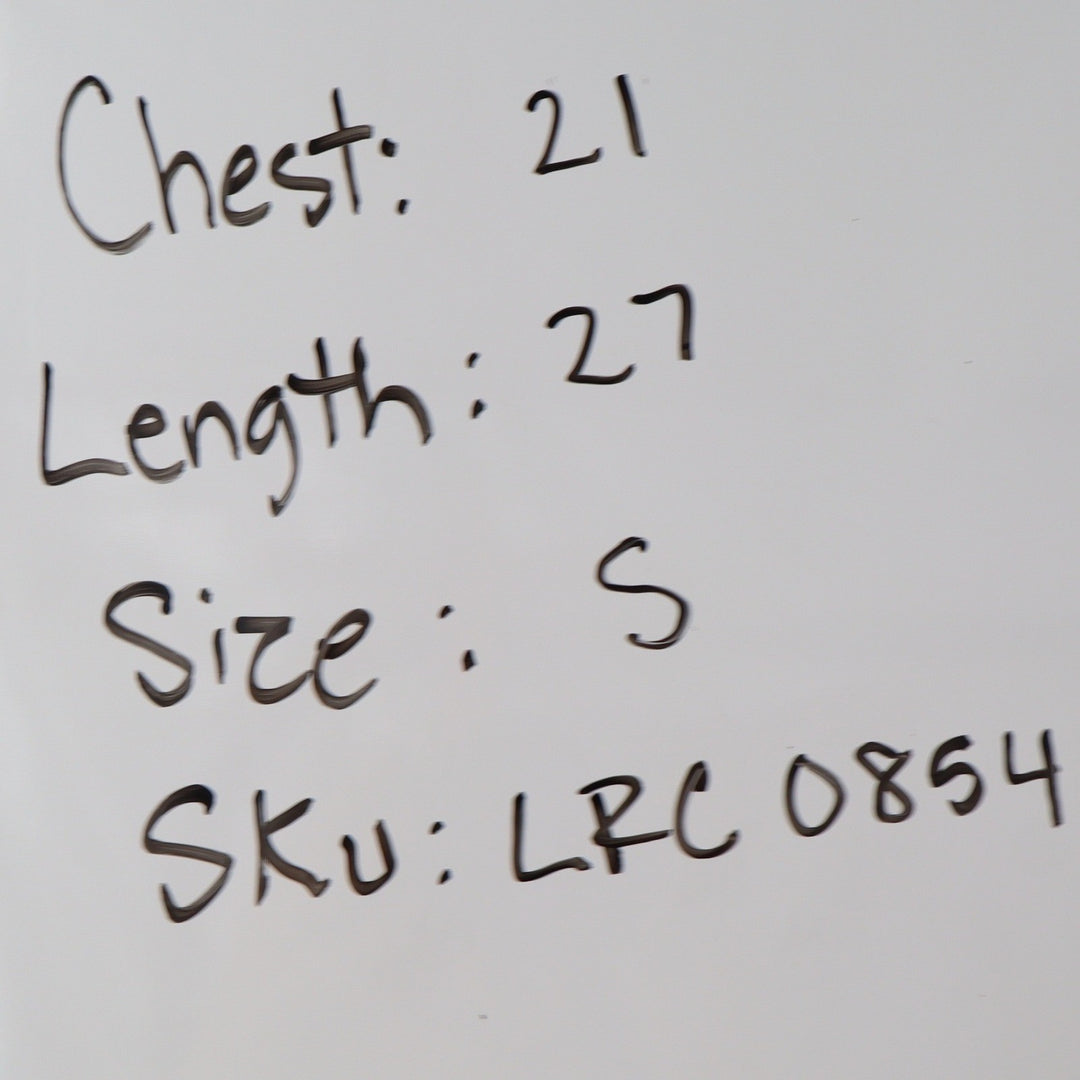 Chest: 21
Length: 27
Size: S
SKU: LRC 0854